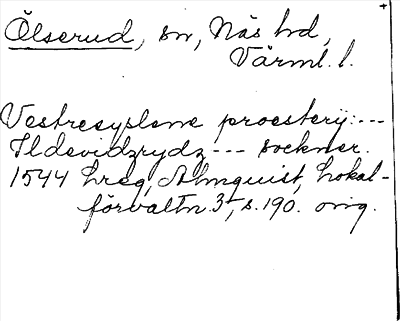 Ölserud, sn, Näs hd,
Värml. l.
Vestresyslene proesterij: ---
Ildevidzrydz --- sockner.
1544 hreg, Almquist, Lokal-
förvaltn. 3, s. 190. orig.